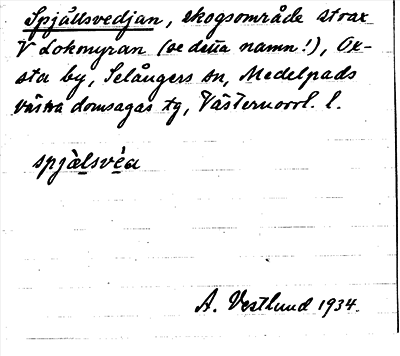 Spjällsvedjan, skogsområde strax
V Lokmyran (se detta namn!), Ox-
sta by, Selångers sn, Medelpads
västra domsagas tg, Västernorrl. l.
spjælsvéa
A. Vestlund 1934.